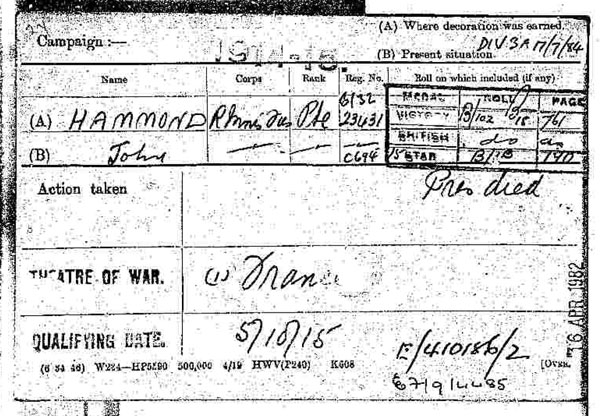 (A) Where decoration was earned.
Campaign :— 1914-15.
(B) Present situation. DIV 3A 17/7/84
Name Corps Rank Reg. No. Roll on which included (if any)
MEDAL ROLL PAGE
(A) HAMMOND Pte 6/32 23431 VICTORY B/102 B18 761
BRITISH do do
(B) John C694 15 STAR
Action taken Pres died
THEATRE OF WAR. (1) France
QUALIFYING DATE. 5/10/15
16 APR 1982
E/410186/2
(6 34 46) W224—HP5590 500,000 4/19 HWV(P240) K608 [OVER.
67/9/4485